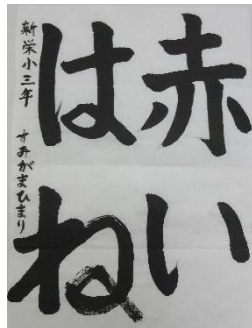 赤い
はね
新栄小三年 すみがまひまり